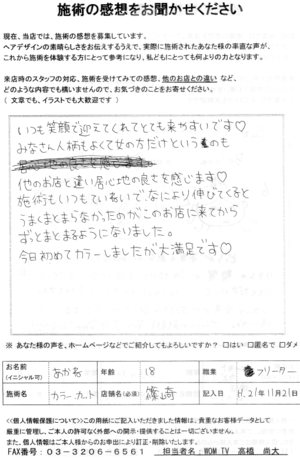 施術の感想をお聞かせください
現在、当店では、施術の感想を募集しています。
ヘアデザインの素晴らしさをお伝えするうえで、実際に施術されたあなた様の率直な声が、
これから施術を体験する方にとって参考になり、私どもにとっても何よりの力となります。
来店時のスタッフの対応、施術を受けてみての感想、他のお店との違い など、
どのような内容でも構いませんので、お気づきのことをお寄せください。
( 文章でも、イラストでも大歓迎です )
いつも笑顔で迎えてくれてとても来やすいです♡
みなさん人柄もよくて女の方だけというのも
他のお店と違い居心地の良さを感じます♡
施術もいつもていねいで、なにより伸びてくると
うまくまとまらなかったのがこのお店に来てから
ずっとまとまるようになりました。
今日初めてカラーしましたが大満足です♡
※ あなた様の声を、ホームページなどでご紹介してもよろしいですか? □はい □匿名で □ダメ
お名前
(イニシャル可)
年齢 18 職業 フリーター
施術名 カラー カット 店舗名(必須) 篠崎 記入日 H.21年11月21日
<個人情報保護について>この用紙にご記入いただきました情報は、貴重なお客様データとして
厳重に管理し、ご本人の許可なく外部への開示・提供することは一切ございません。
また、個人情報はご本人様からのお申出により訂正・削除いたします。
FAX番号:03-3206-6561 担当者名:WOM TV 高橋 尚大